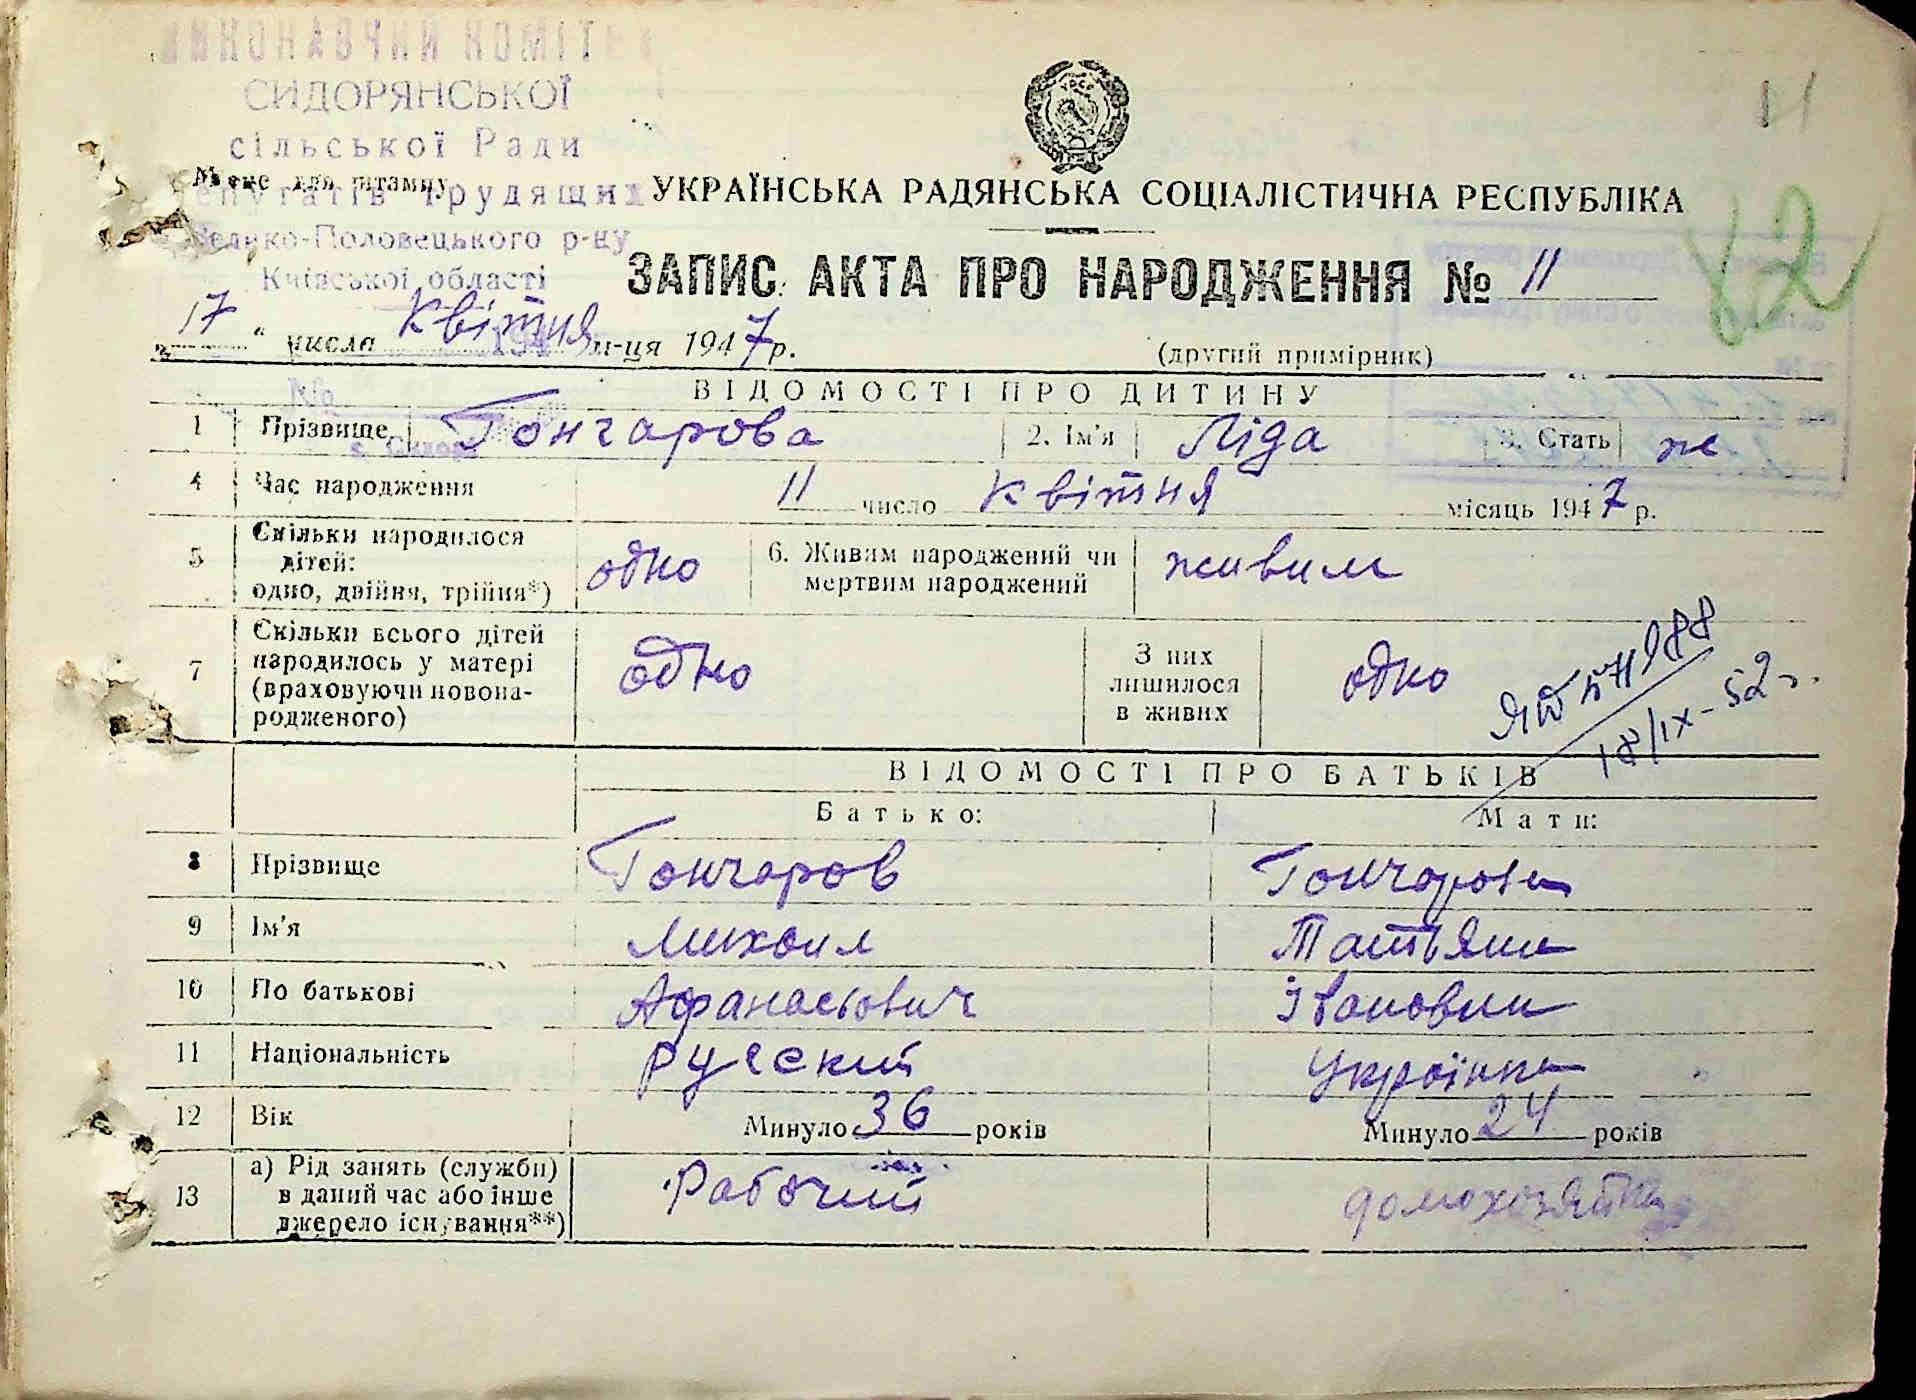 ВИКОНАВЧИЙ КОМІТЕТ
СИДОРЯНСЬКОЇ
сільської Ради
депутатів трудящих
Велико-Половецького р-ну
Київської області
194
№
с. Сидори
Місце для штампу
11
62
УРСР
УКРАЇНСЬКА РАДЯНСЬКА СОЦІАЛІСТИЧНА РЕСПУБЛІКА
ЗАПИС АКТА ПРО НАРОДЖЕННЯ № 11
„ 17 “ числа Квітня м-ця 1947 р.
(другий примірник)
ВІДОМОСТІ ПРО ДИТИНУ
1 Прізвище Гончарова 2. Ім'я Ліда 3. Стать ж
4 Час народження 11 число Квітня місяць 1947 р.
5 Скільки народилося дітей: одно, двійня, трійня*) одно 6. Живим народжений чи мертвим народжений живим
7 Скільки всього дітей народилось у матері (враховуючи новонародженого) одно З них лишилося в живих одно
18/IX-52 г.
ВІДОМОСТІ ПРО БАТЬКІВ
Батько: Мати:
8 Прізвище Гончаров Гончарова
9 Ім'я Михаил Татьяна
10 По батькові Афанасьович Івановна
11 Національність Русский Українка
12 Вік Минуло 36 років Минуло 24 років
13 а) Рід занять (служби) в даний час або інше джерело існування**) Рабочий домохозяйка